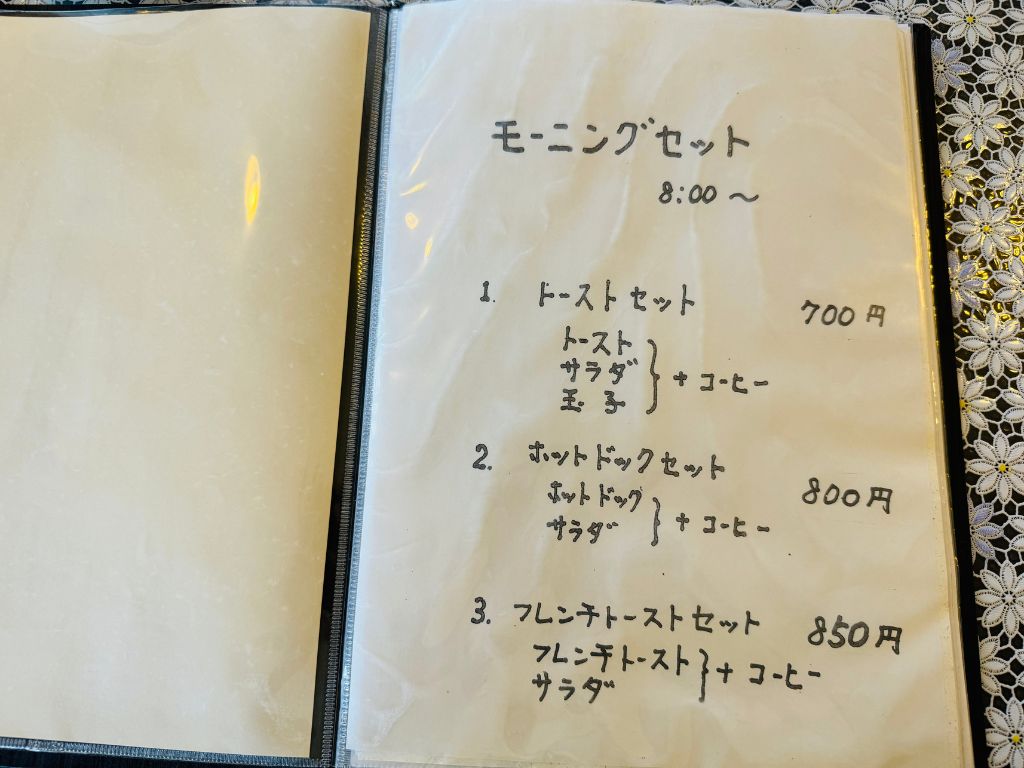 モーニングセット
8:00～
1. トーストセット 700円
トースト
サラダ
玉子
} + コーヒー
2. ホットドックセット 800円
ホットドック
サラダ
} + コーヒー
3. フレンチトーストセット 850円
フレンチトースト
サラダ
} + コーヒー